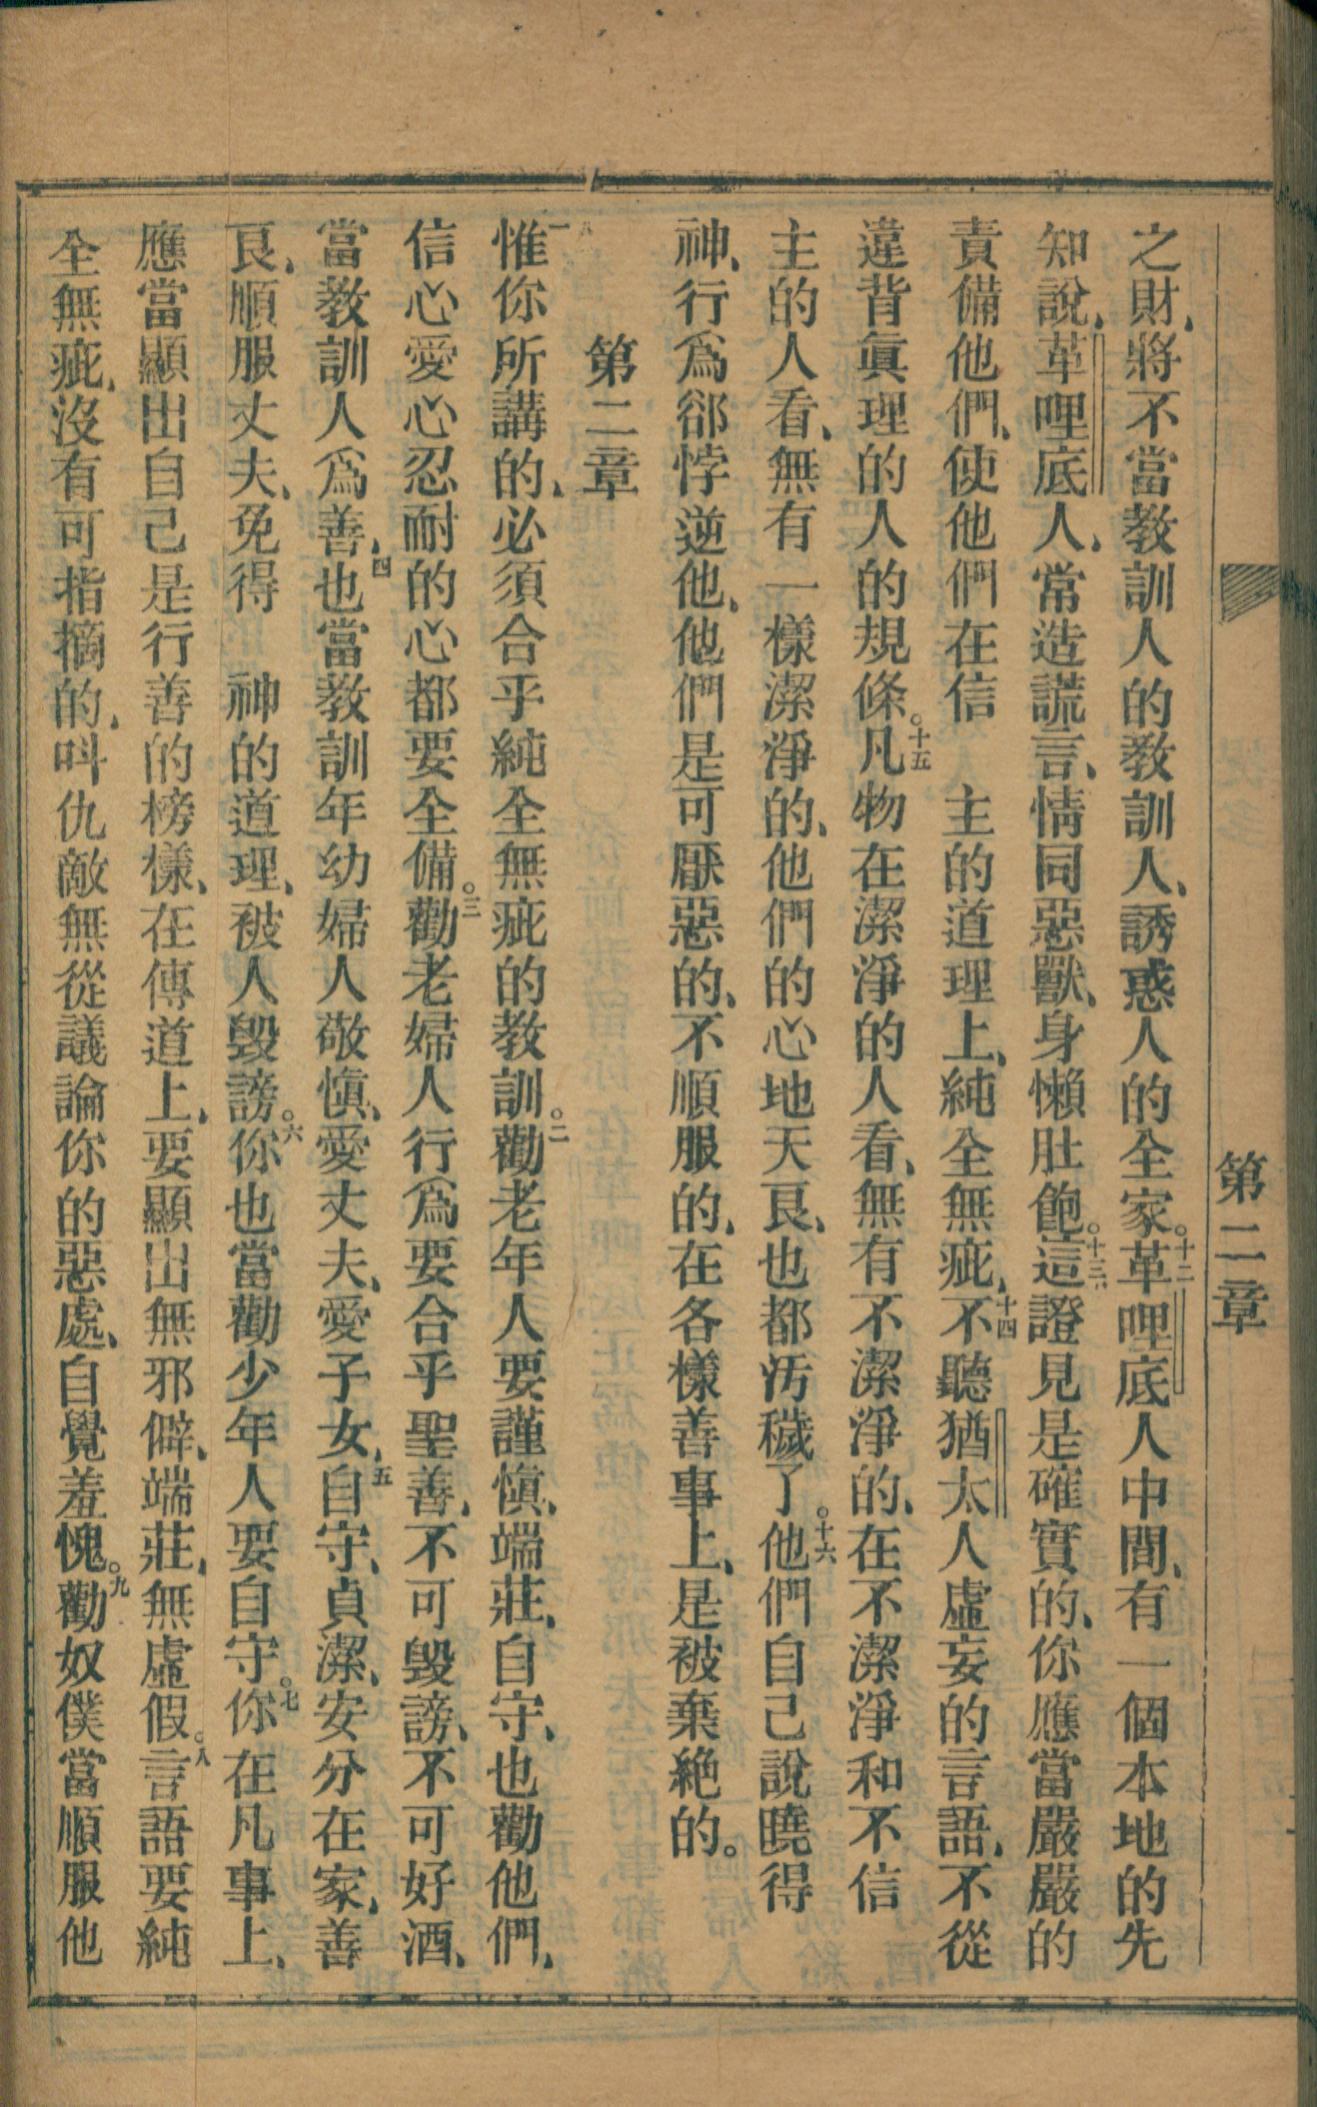 第二章
之財、將不當教訓人的教訓人、誘惑人的全家。十二革哩底人中間、有一個本地的先
知說、革哩底人、常造謊言、情同惡獸、身懶肚飽。十三這證見是確實的、你應當嚴嚴的
責備他們、使他們在信　主的道理上、純全無疵、十四不聽猶太人虛妄的言語、不從
違背眞理的人的規條。十五凡物在潔淨的人看、無有不潔淨的、在不潔淨和不信
主的人看、無有一樣潔淨的、他們的心地天良、也都汚穢了。十六他們自己說曉得
神、行爲卻悖逆他、他們是可厭惡的、不順服的、在各樣善事上、是被棄絶的。
第二章
一惟你所講的、必須合乎純全無疵的教訓。二勸老年人要謹愼、端莊、自守、也勸他們、
信心愛心忍耐的心都要全備。三勸老婦人行爲要合乎聖善、不可毀謗、不可好酒、
當教訓人爲善、四也當教訓年幼婦人敬愼、愛丈夫、愛子女、五自守、貞潔、安分在家、善
良、順服丈夫、免得　神的道理、被人毀謗。六你也當勸少年人要自守。七你在凡事上、
應當顯出自己是行善的榜樣、在傳道上、要顯出無邪僻、端莊、無虛假。八言語要純
全無疵、沒有可指摘的、叫仇敵無從議論你的惡處、自覺羞愧。九勸奴僕當順服他